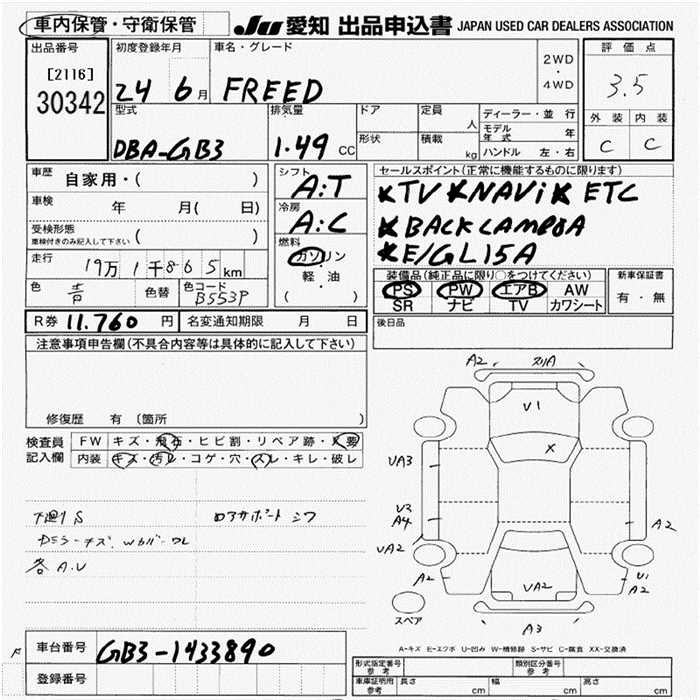 車内保管・守衛保管
JU 愛知 出品申込書 JAPAN USED CAR DEALERS ASSOCIATION
出品番号
[2116]
30342
初度登録年月
24 6月
車名・グレード
FREED
2WD
・
4WD
評価点
3.5
外装 内装
C C
型式
DBA-GB3
排気量
1.49 CC
ドア
形状
定員 人
積載 kg
ディーラー・並行
モデル年式 年
ハンドル 左・右
車歴 自家用・( )
車検 年 月(日)
受検形態
車検付きのみ記入して下さい ( )
走行 19万1千865km
色 青 色替 色コード B553P
シフト
A:T
冷房
A:C
燃料
ガソリン
軽・油
( )
セールスポイント(正常に機能するものに限ります)
*TV *NAVi* ETC
*BACKCAMERA
*E/GL15A
装備品(純正品に限り〇をつけてください)
PS PW エアB AW
SR ナビ TV カワシート
新車保証書
有・無
R券 11.760円 名変通知期限 月 日
後日品
注意事項申告欄(不具合内容等は具体的に記入して下さい)
修復歴 有〔箇所 〕
検査員
記入欄
FW キズ・飛石・ヒビ割・リペア跡・X要
内装 キズ・汚レ・コゲ・穴・スレ・キレ・破レ
下廻りS
ロアサポートシワ
各A.U
A2
V1
X
UA3
A4
UA2
A2
UA2
A2
U1
A2
A3
スペア
A-キズ E-エクボ U-凹み W-補修跡 S-サビ C-腐食 XX-交換済
車台番号 GB3-1433890
登録番号
形式指定番号
参考
類別区分番号
参考
車庫証明用
参考
長さ cm 幅 cm 高さ cm